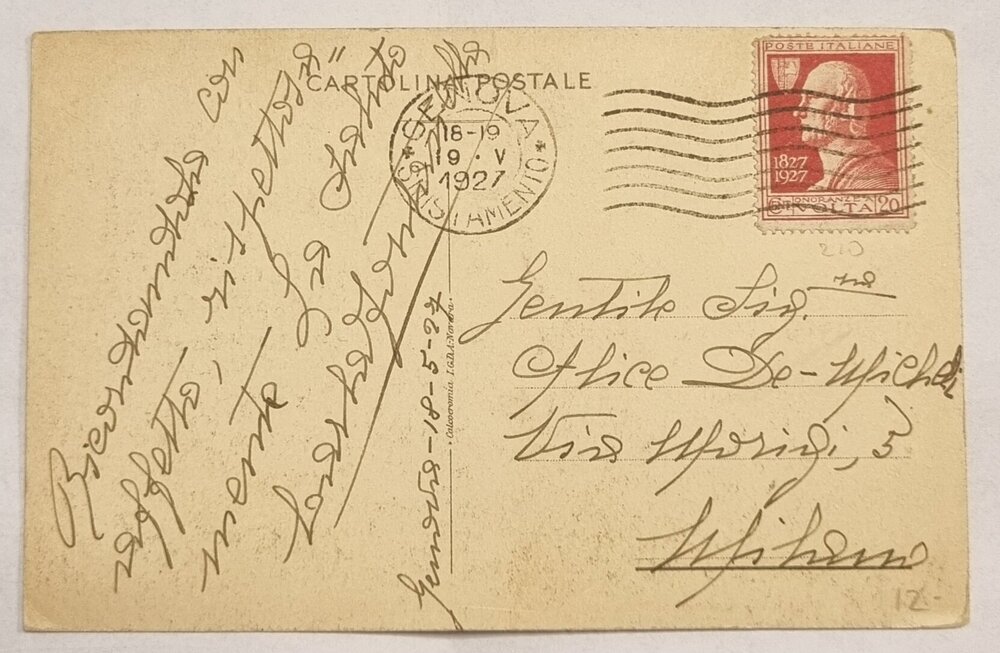 CARTOLINA POSTALE
POSTE ITALIANE
1827
1927
ONORANZE A
Cent VOLTA 20
GENOVA
18-19
19 · V
1927
Ricordandola con
affetto, rispettosa
mente La saluto
Genova-18-5-27
Gentile Sig.na
Alice De-Micheli
Via Morigi, 5
Milano
210
12.-